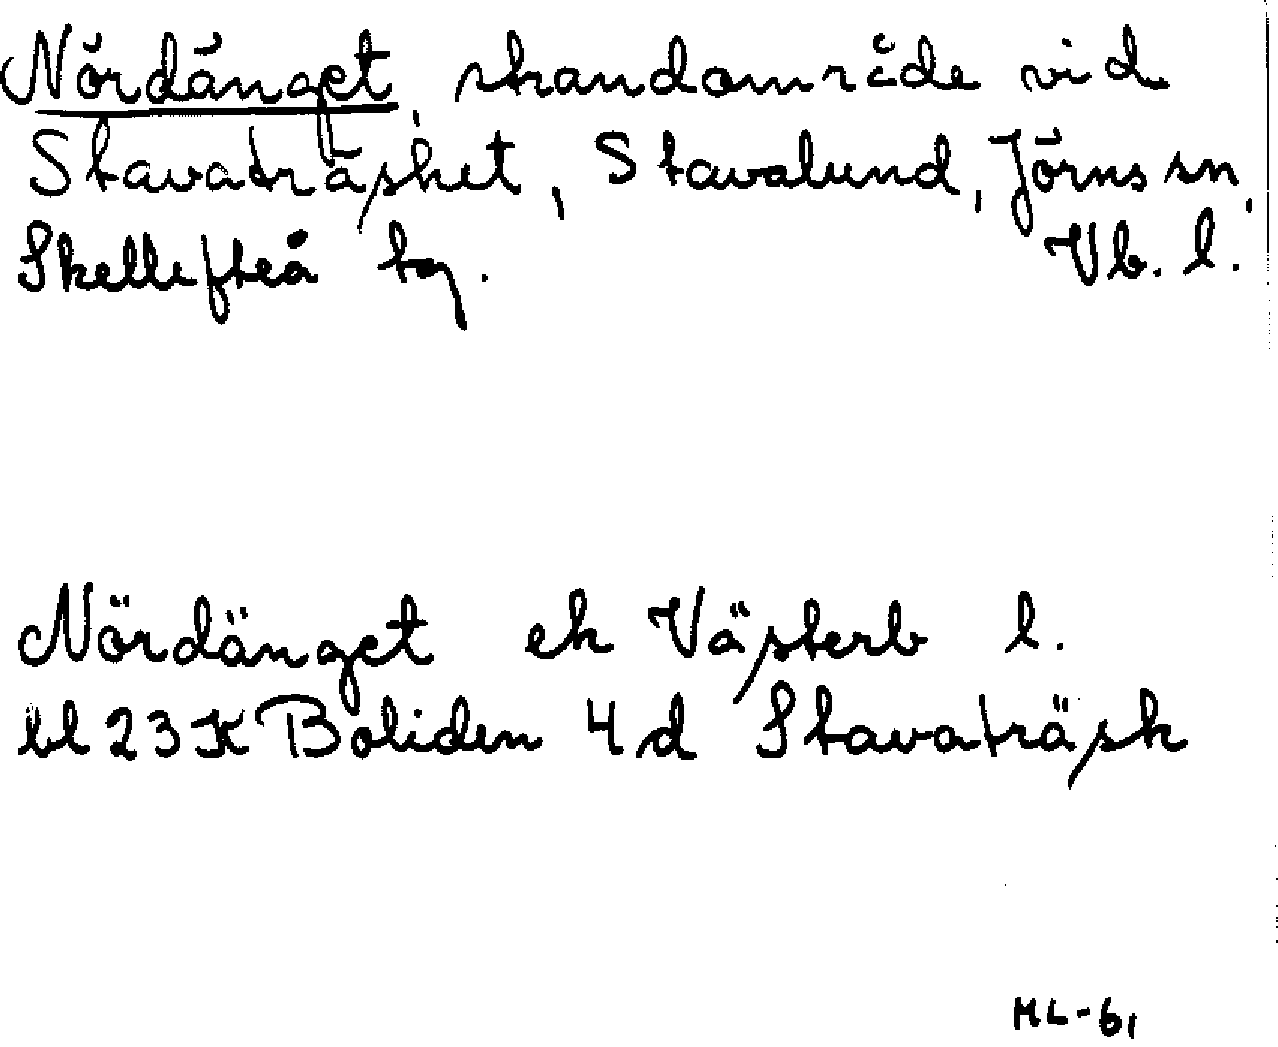 Nördänget, strandområde vid
Stavaträsket, Stavalund, Jörns sn,
Skellefteå tg. Vb. l.
Nördänget ek Västerb l.
bl 23 K Boliden 4d Stavaträsk
ML-61